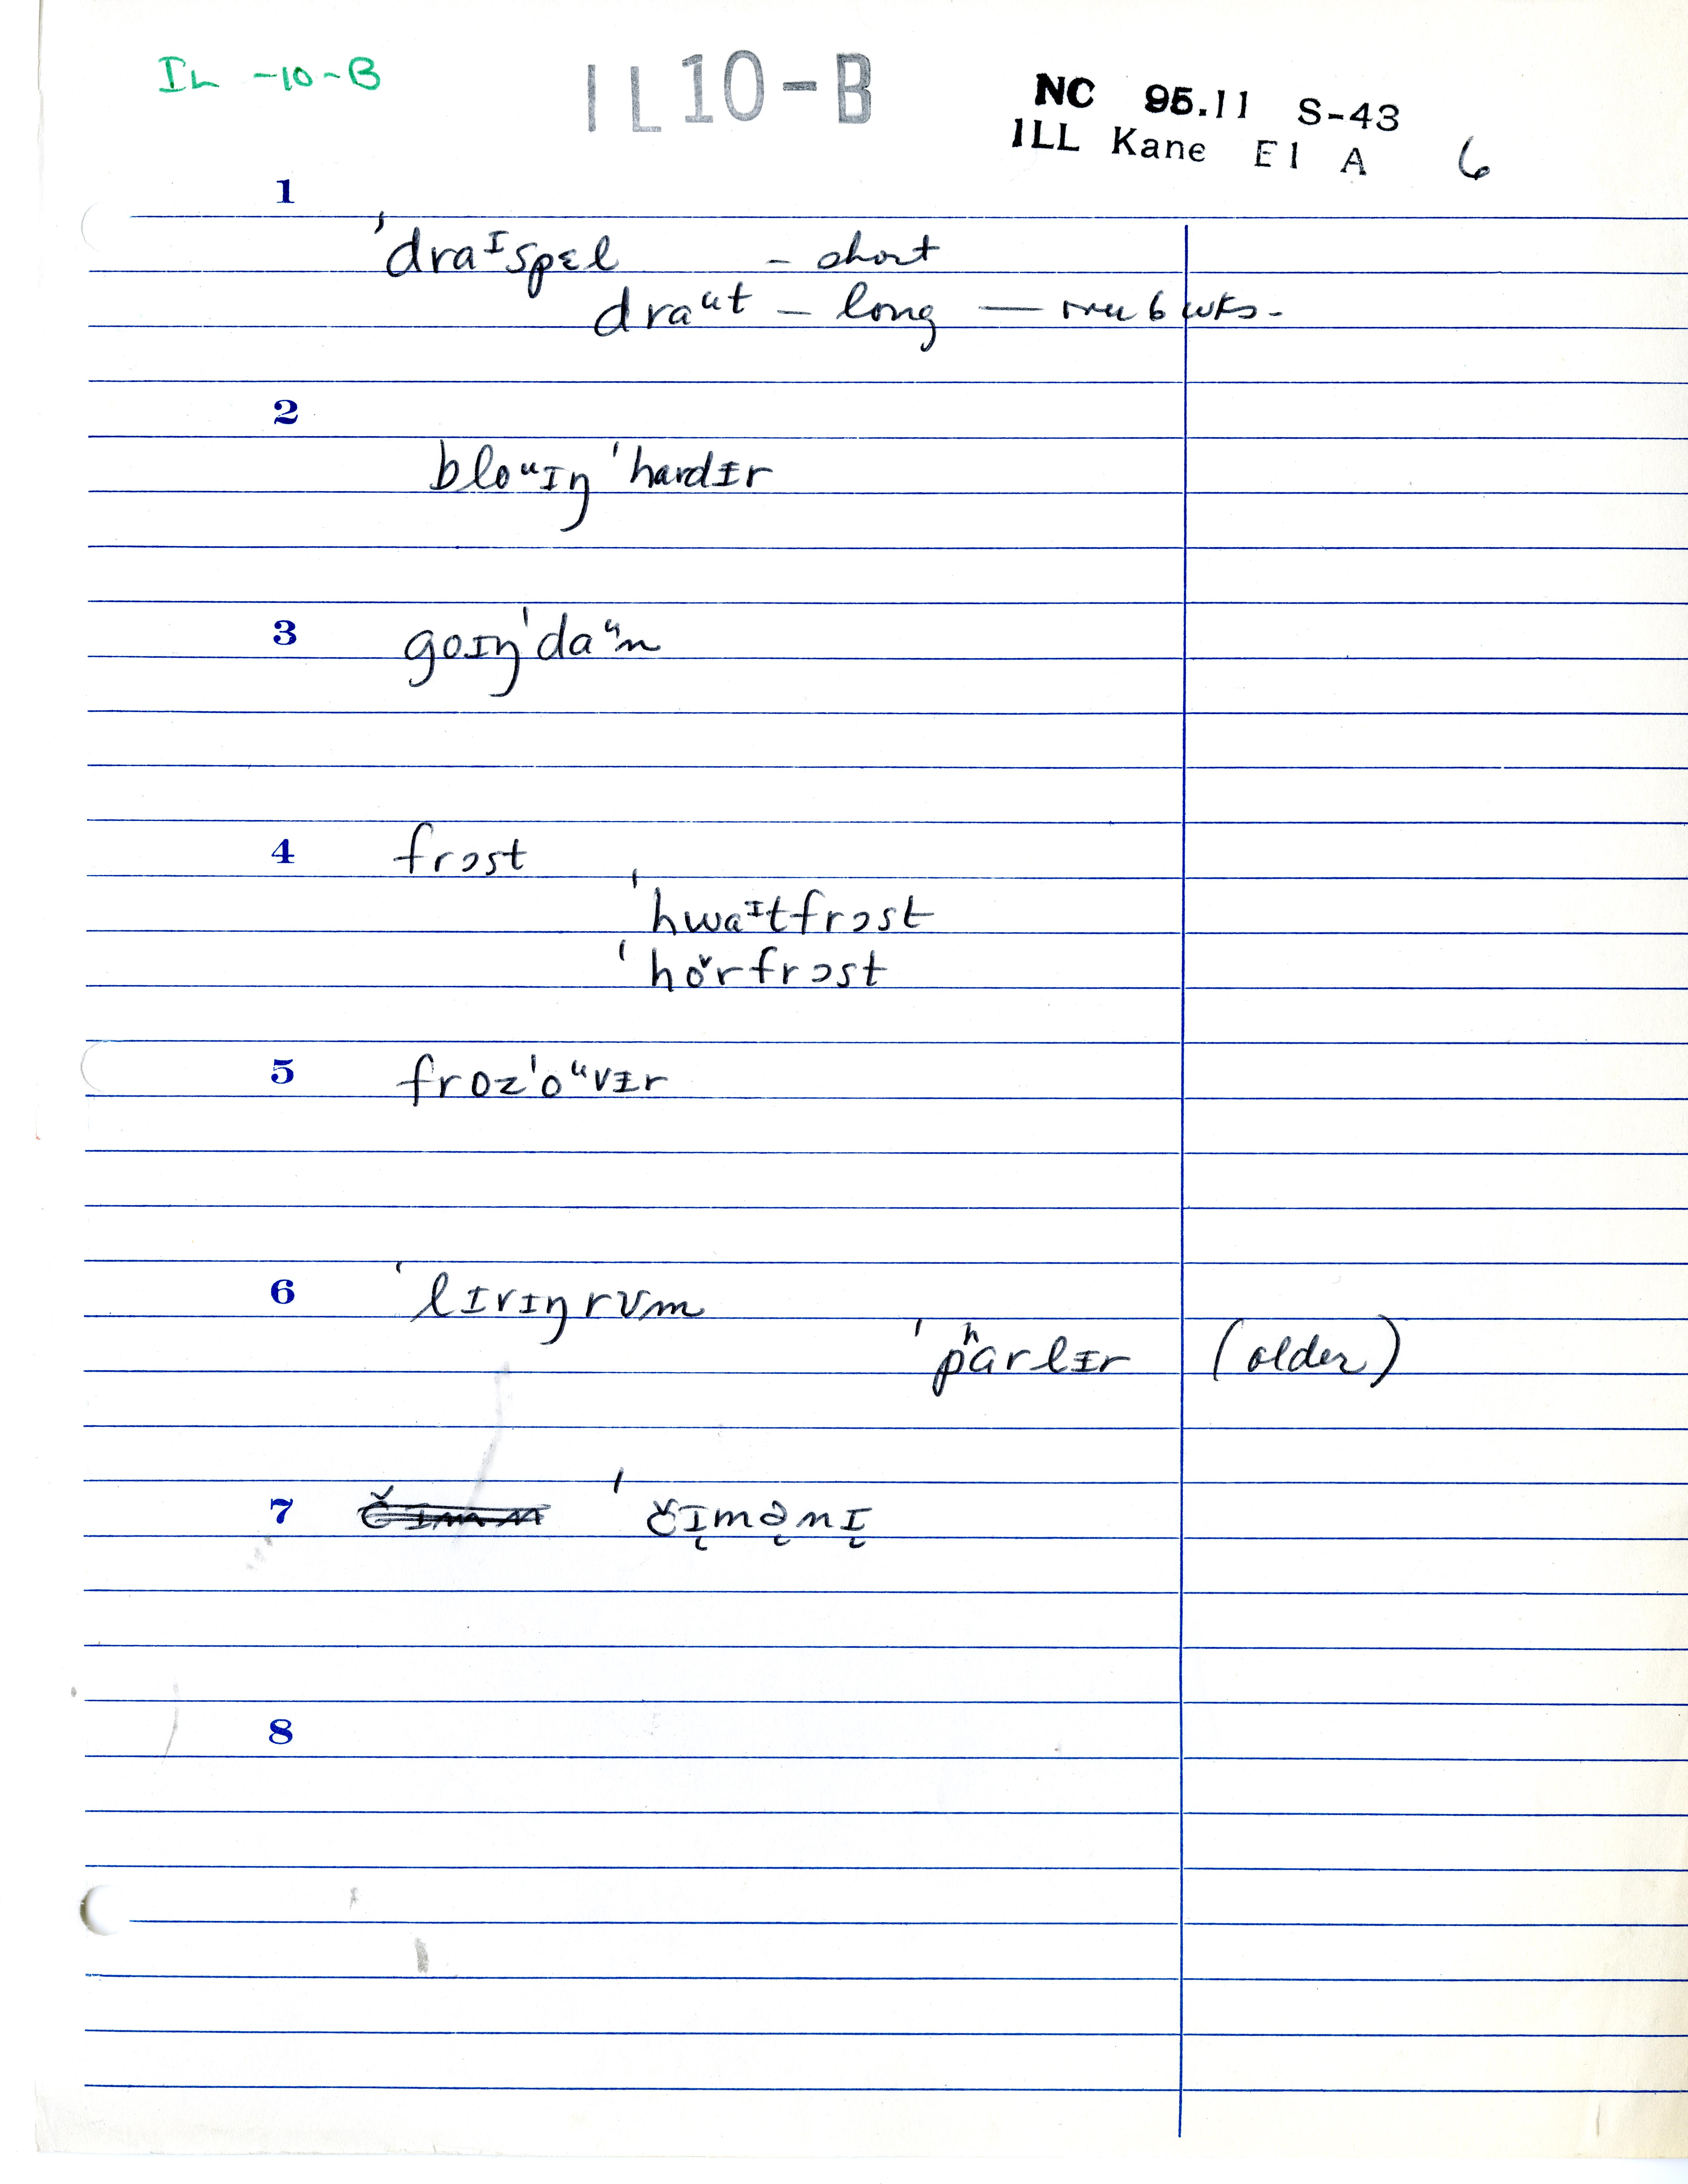 IL -10-B
IL10-B
NC 95.11 S-43
ILL Kane E1 A 6
1
ˈdraᶦspɛl - short
draᵘt - long — over 6 wks.
2
bloᵘɪŋ ˈhardᵻr
3
goɪŋˈdaᵘn
4 frɔst
ˈhwaᶦtfrɔst
ˈho̬rfrɔst
5 frozˈoᵘvᵻr
6 ˈlɪvɪŋrʊm
ˈpʰɑrlᵻr (older)
7 ˈčɪ̨mə̨nɪ̨
8